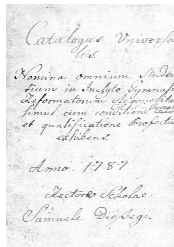 Catalogus Universa
lis.
Nomina omnium Studen
tium in Inclyto Gymnasio
Reformatorum
simul cum conditione
et qualificatione Profectus
exhibens.
Anno 1787
Rectore Scholae
Samuele Diószegi.